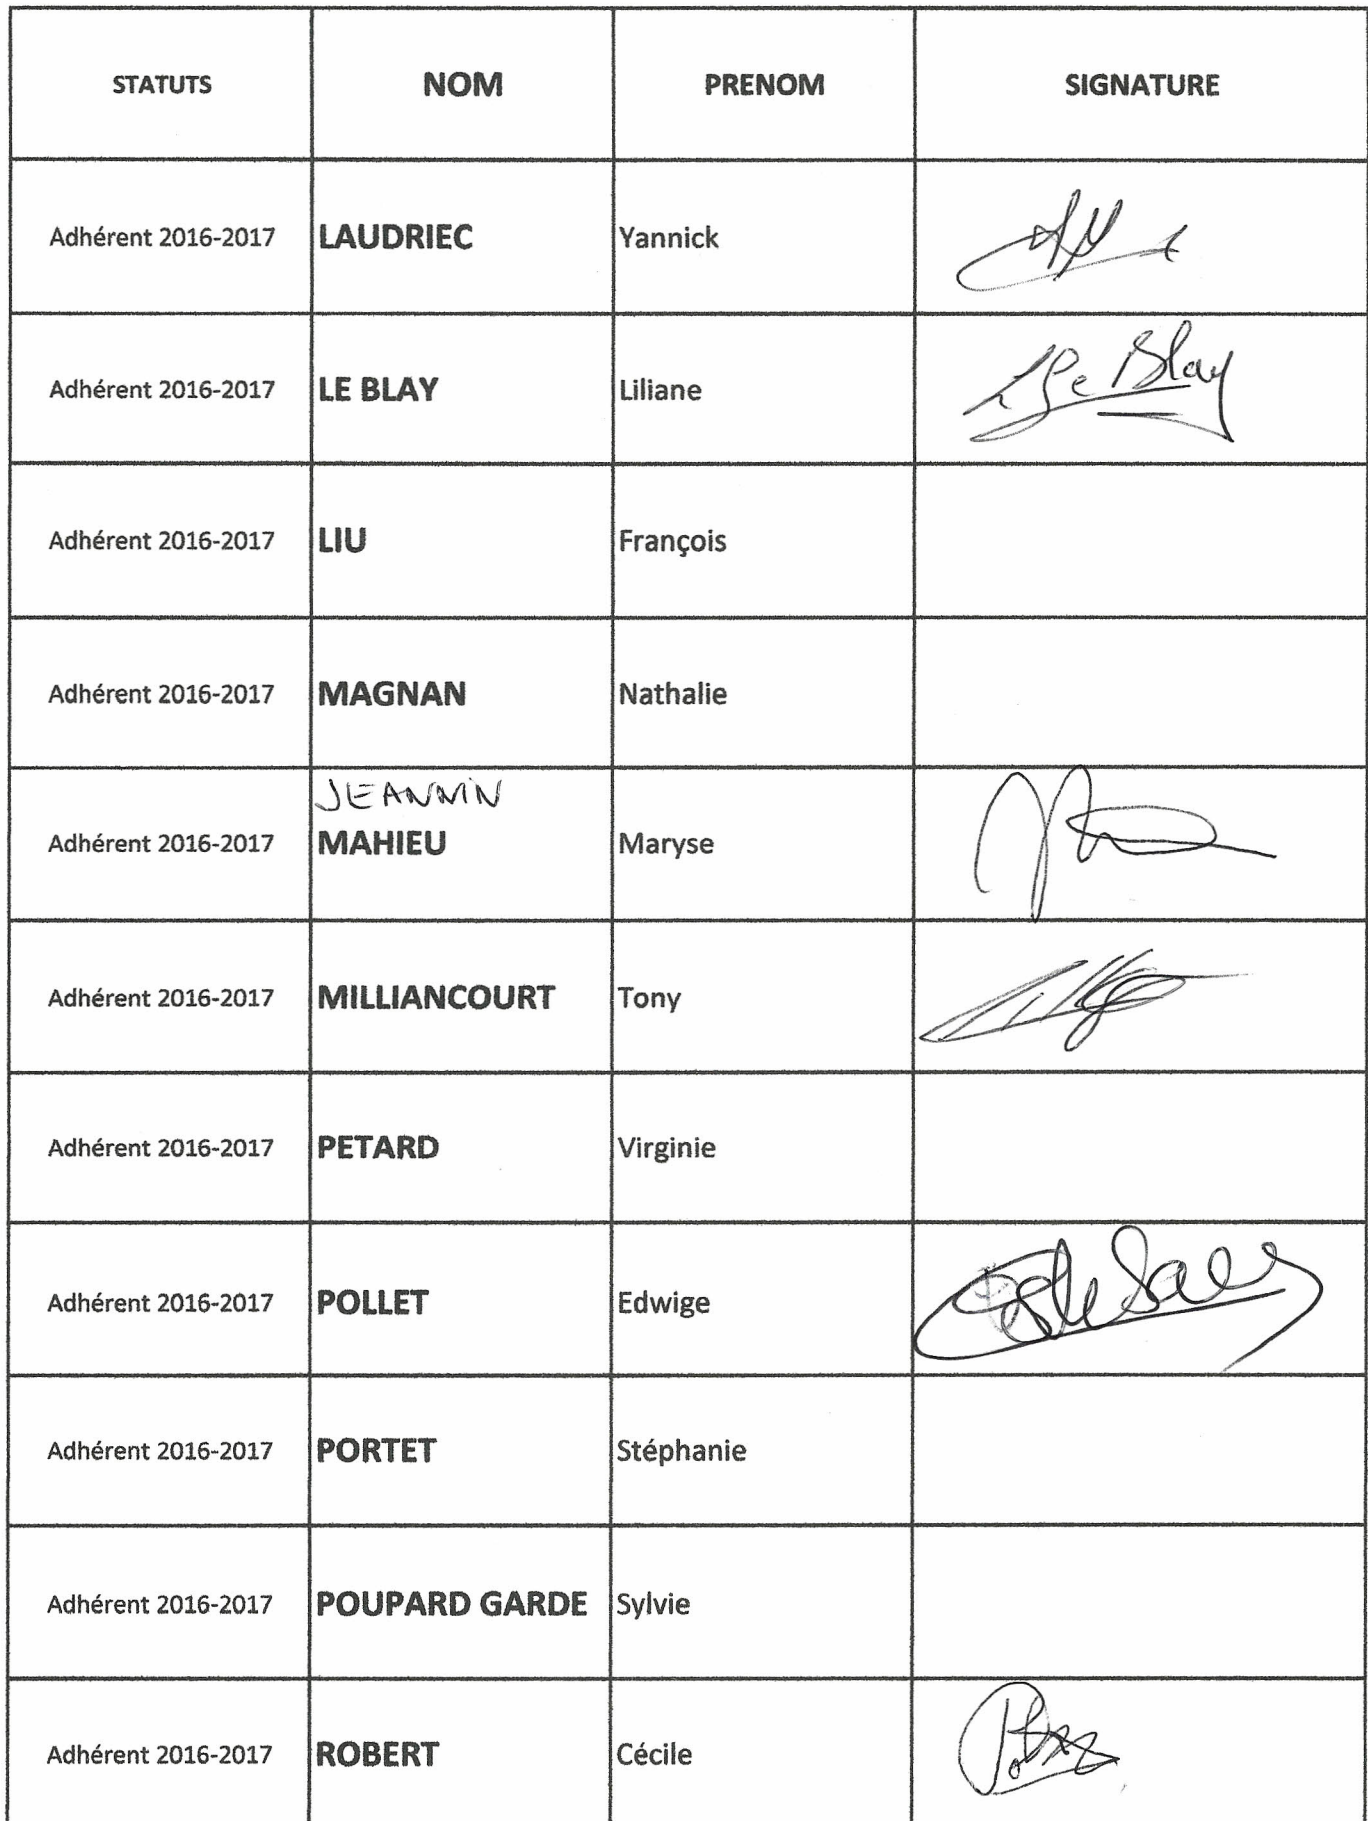 STATUTS NOM PRENOM SIGNATURE
Adhérent 2016-2017 LAUDRIEC Yannick
Adhérent 2016-2017 LE BLAY Liliane Le Blay
Adhérent 2016-2017 LIU François
Adhérent 2016-2017 MAGNAN Nathalie
JEANNIN
Adhérent 2016-2017 MAHIEU Maryse
Adhérent 2016-2017 MILLIANCOURT Tony
Adhérent 2016-2017 PETARD Virginie
Adhérent 2016-2017 POLLET Edwige
Adhérent 2016-2017 PORTET Stéphanie
Adhérent 2016-2017 POUPARD GARDE Sylvie
Adhérent 2016-2017 ROBERT Cécile